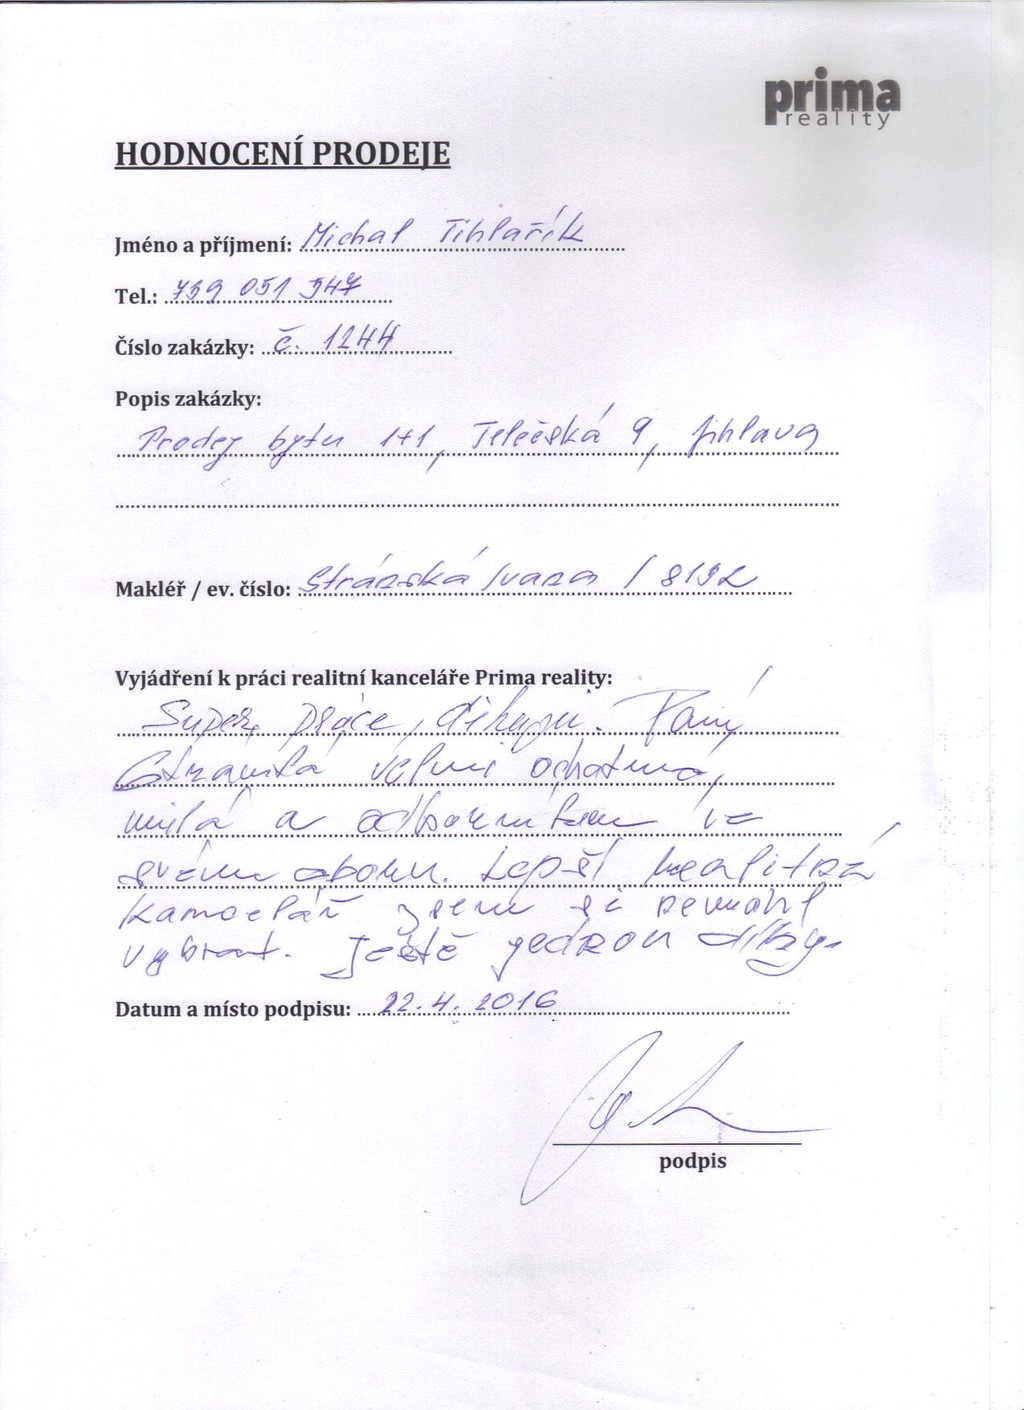 prima
reality
HODNOCENÍ PRODEJE
Jméno a příjmení: Michal Tihlařík
Tel.: 739 051 547
Číslo zakázky: č. 1244
Popis zakázky:
Prodej bytu 1+1, Telečská 9, Jihlava
Makléř / ev. číslo: Stránská Ivana / 8192
Vyjádření k práci realitní kanceláře Prima reality:
Super práce, děkuju. Paní
Stránská velmi ochotná,
milá a odborníkem ve
svém oboru. Lepší realitní
kancelář jsem si nemohl
vybrat. Ještě jednou díky.
Datum a místo podpisu: 22.4.2016
podpis